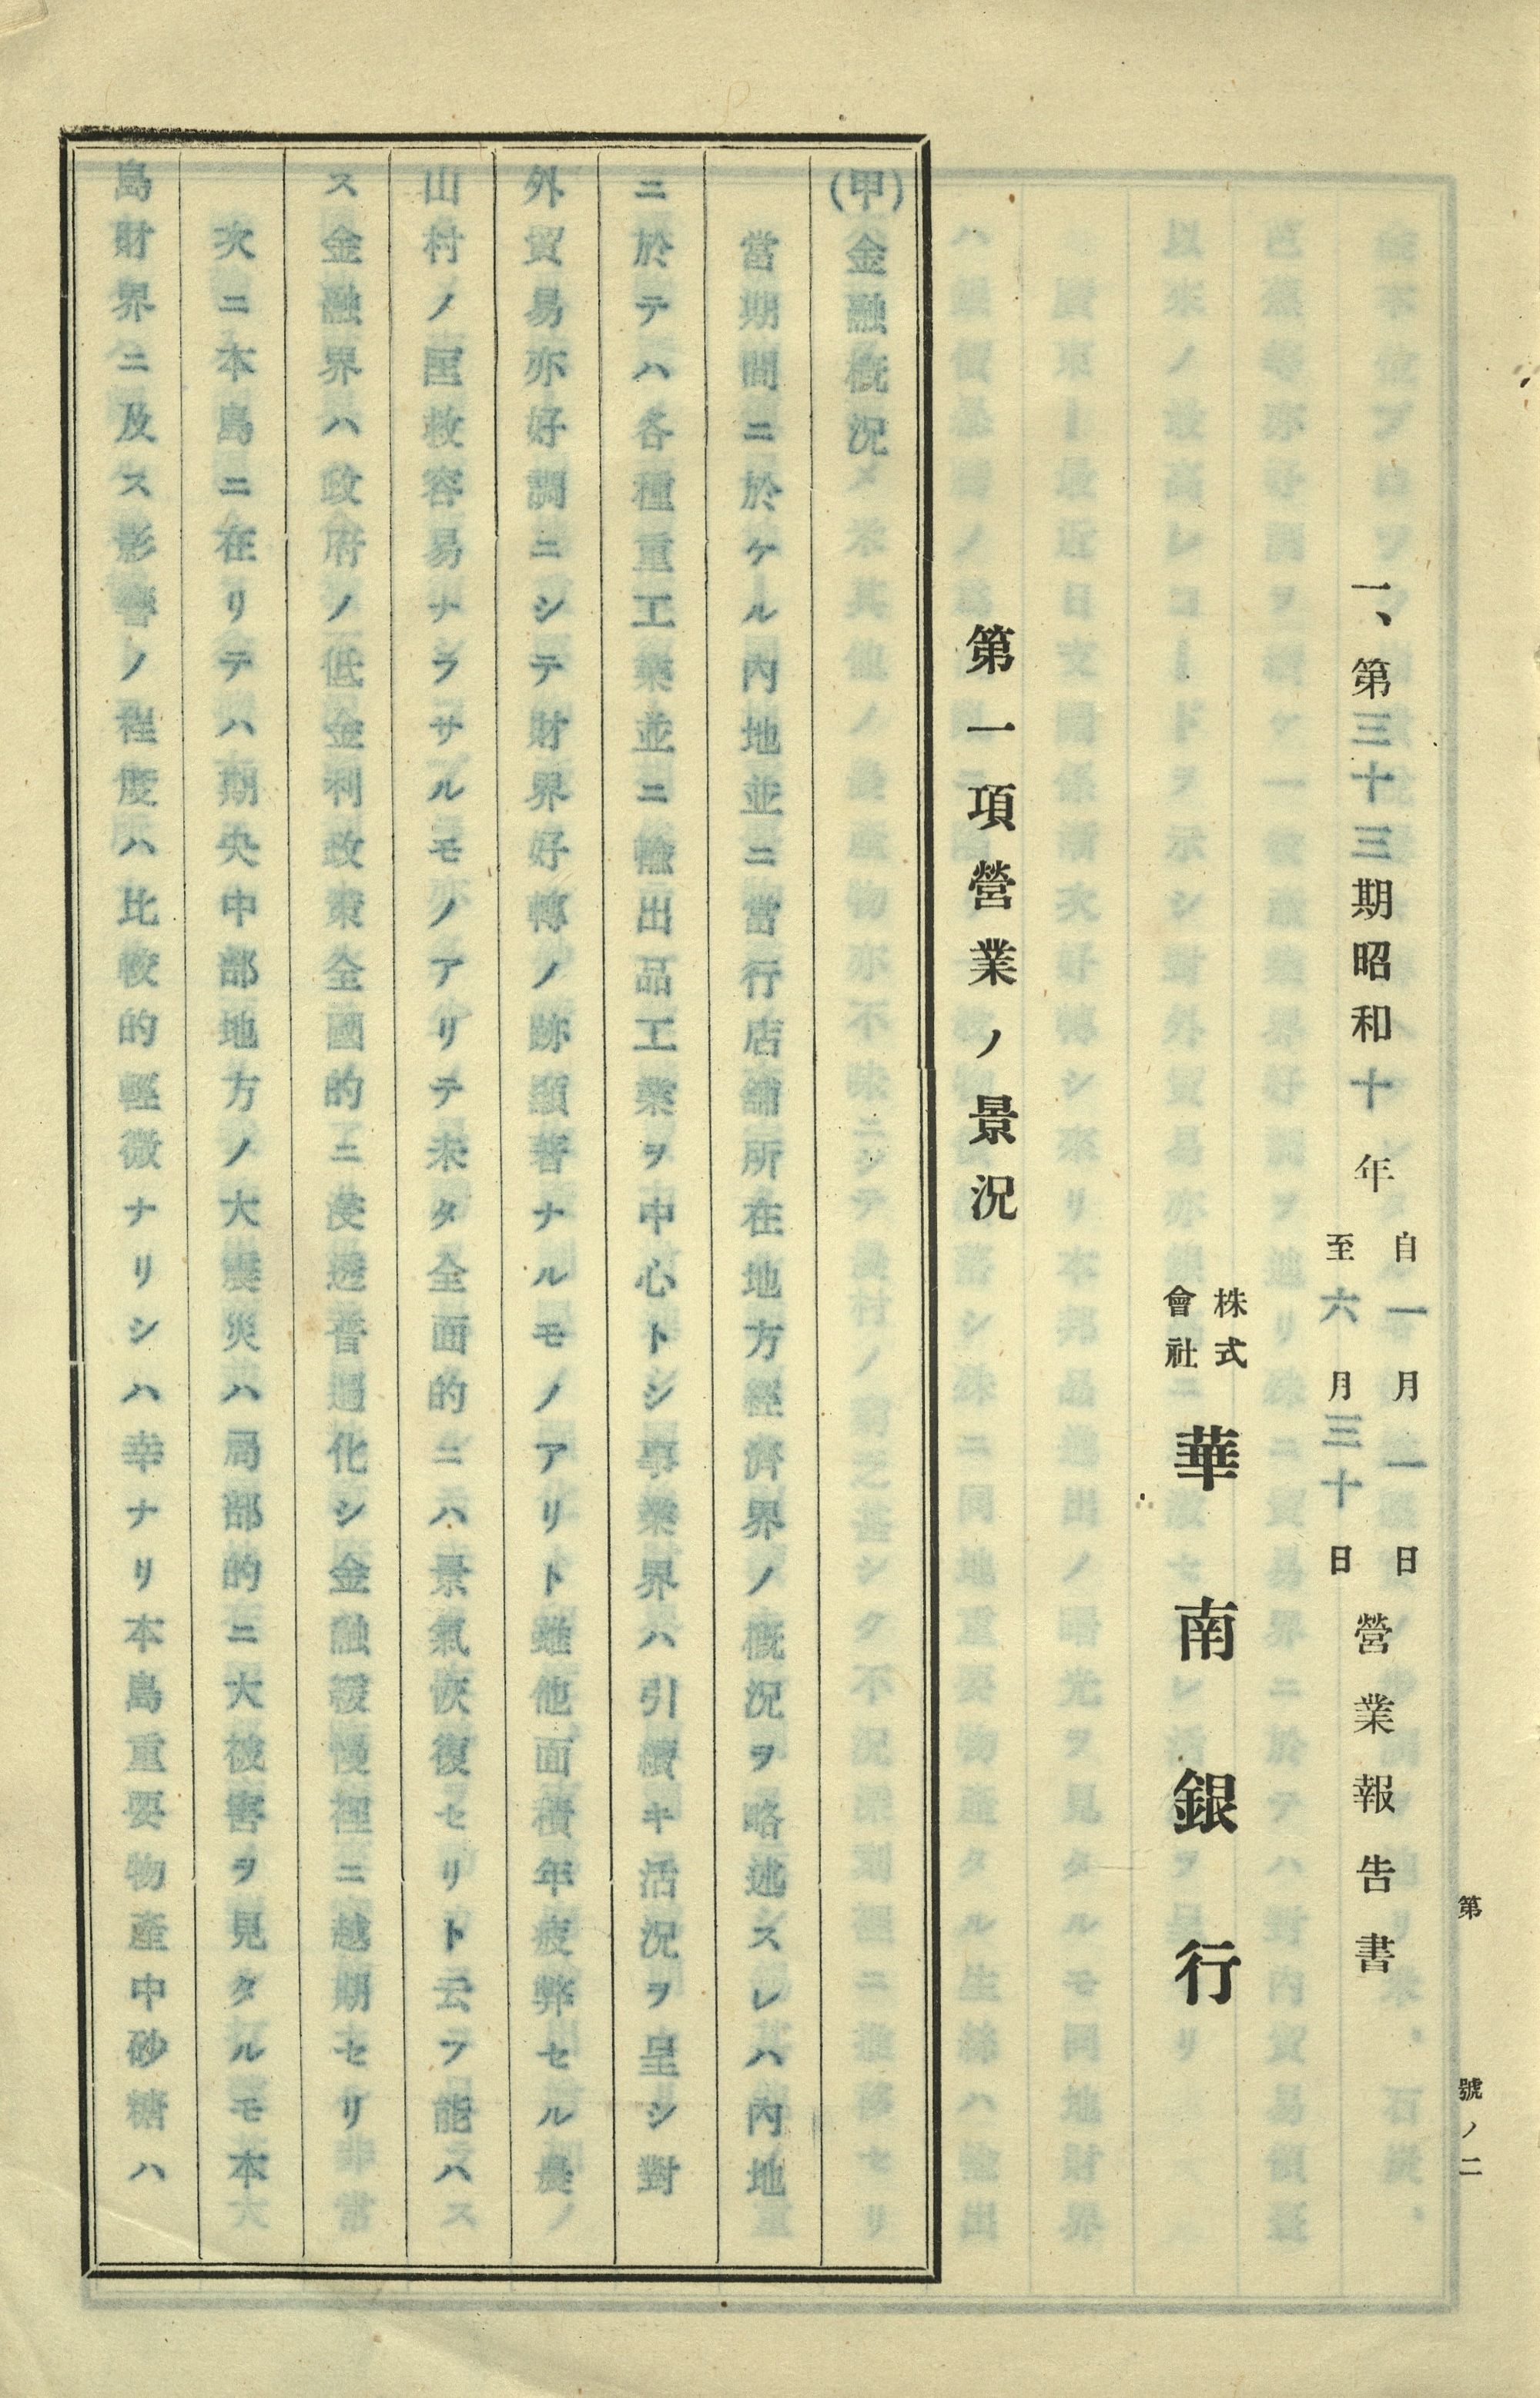 第　號ノ二
一、第三十三期昭和十年自一月一日至六月三十日營業報告書
株式會社華南銀行
第一項營業ノ景況
(甲)金融概況
當期間ニ於ケル內地並ニ當行店舖所在地方經濟界ノ概況ヲ略述スレハ內地
ニ於テハ各種重工業並ニ輸出品工業ヲ中心トシ事業界ハ引續キ活況ヲ呈シ對
外貿易亦好調ニシテ財界好轉ノ跡顯著ナルモノアリト雖他面積年疲弊セル農
山村ノ匡救容易ナラサルモノアリテ未タ全面的ニハ景氣恢復セリト云フ能ハ
ス金融界ハ政府ノ低金利政策全國的ニ浸透普遍化シ金融緩慢裡ニ越期セリ
次ニ本島ニ在リテハ期央中部地方ノ大震災ハ局部的ニ大被害ヲ見タルモ本
島財界ニ及ス影響ノ程度ハ比較的輕微ナリシハ幸ナリ本島重要物產中砂糖ハ